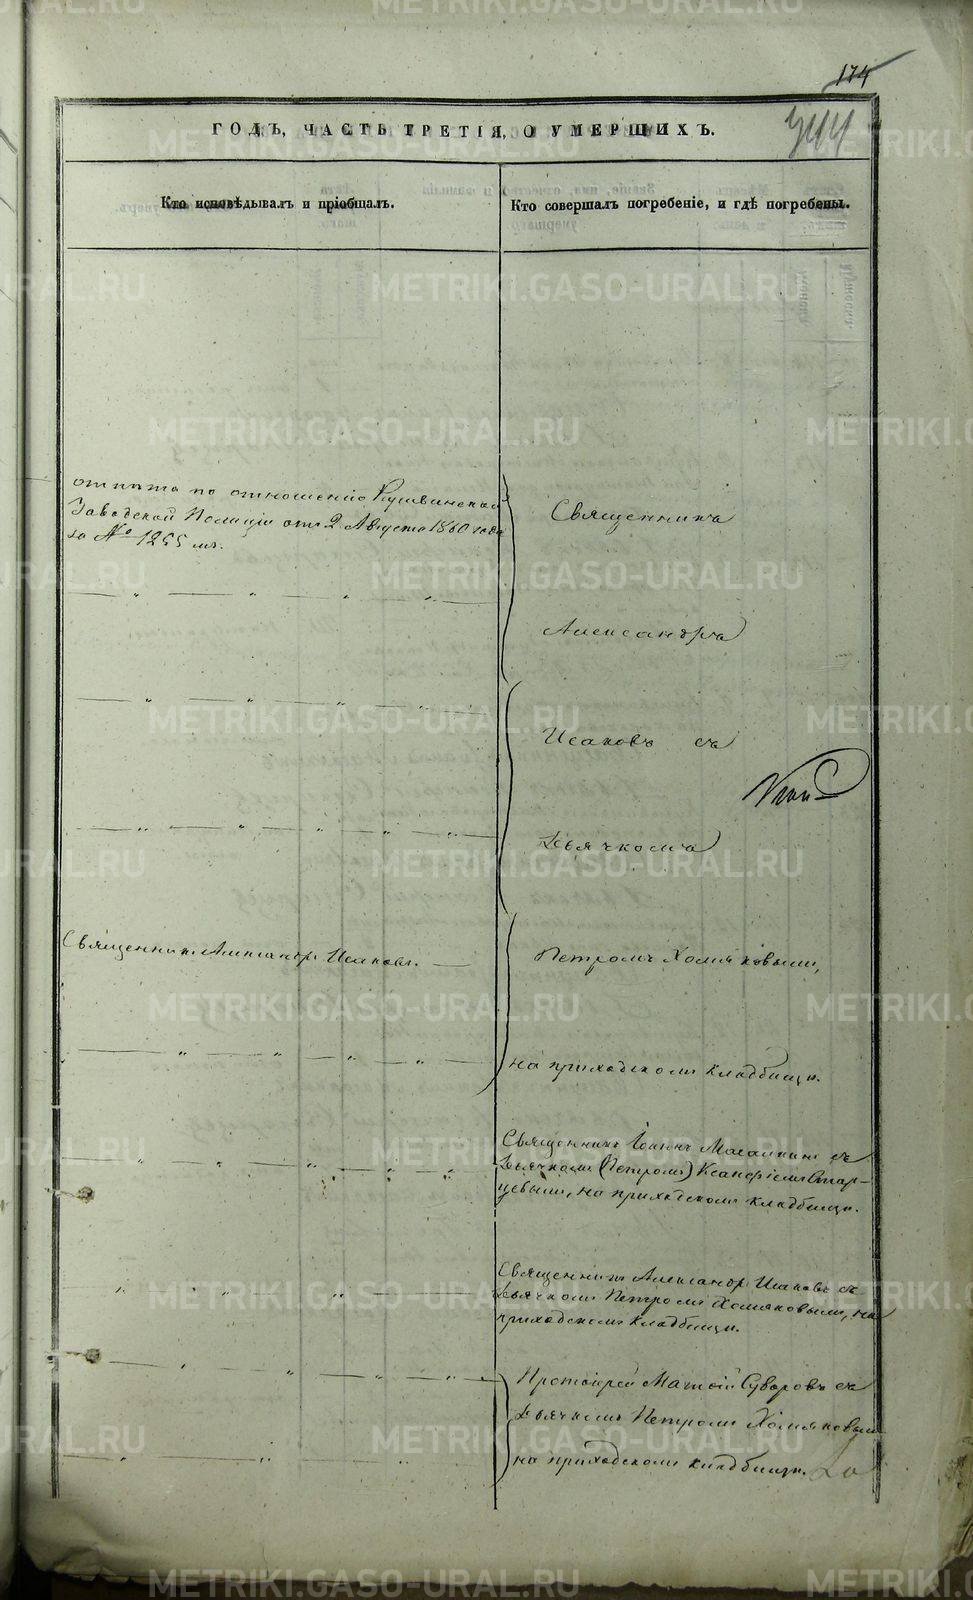 174
344
ГОДЪ, ЧАСТЬ ТРЕТІЯ, О УМЕРШИХЪ.
Кто исповѣдывалъ и пріобщалъ.
Кто совершалъ погребеніе, и гдѣ погребены.
отпѣта по отношенію Кушвинской
Заводской Полиціи отъ 2 Августа 1860 года
за № 1255 мъ.
Священникъ
Александръ
Исаковъ съ
Дьячкомъ
Священникъ Александръ Исаковъ.
Петромъ Хомяковымъ,
на приходскомъ кладбищѣ.
Священникъ Іоаннъ Масалкинъ съ
Дьячкомъ (Петромъ) Ксанфіемъ Стар-
цевымъ, на приходскомъ кладбищѣ.
Священникъ Александръ Исаковъ съ
Дьячкомъ Петромъ Хомяковымъ, на
приходскомъ кладбищѣ.
Протоіерей Матѳій Суворовъ съ
Дьячкомъ Петромъ Хомяковым
на приходскомъ кладбищѣ.
METRIKI.GASO-URAL.RU